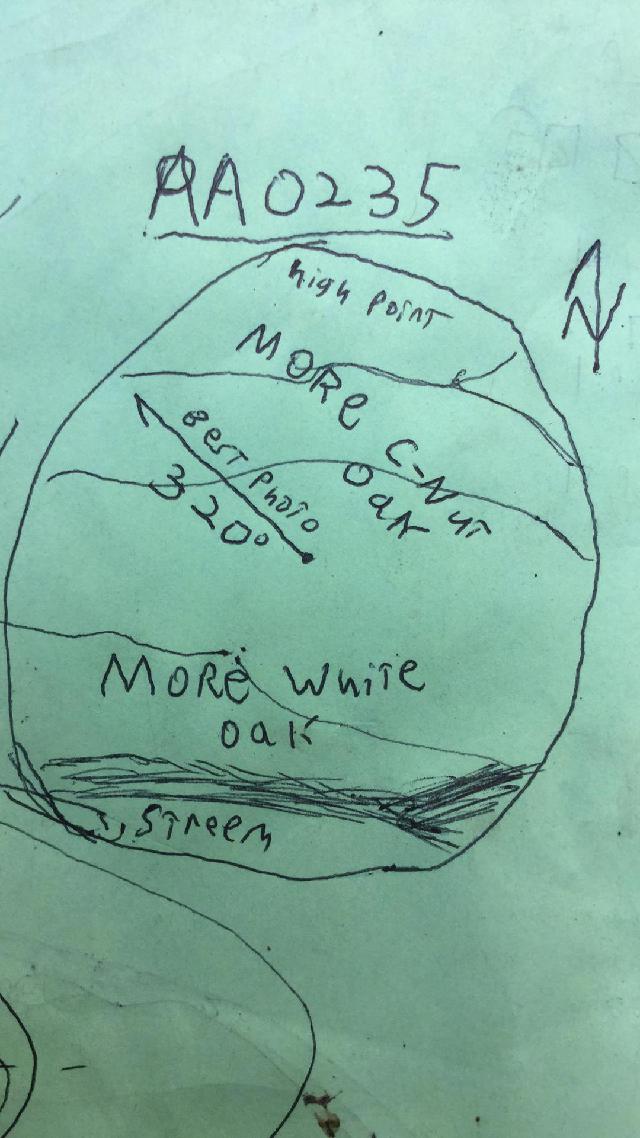 AA0235
N
high point
MORe C-Nut
Oak
Best Photo
320°
MORe White
oak
Streem